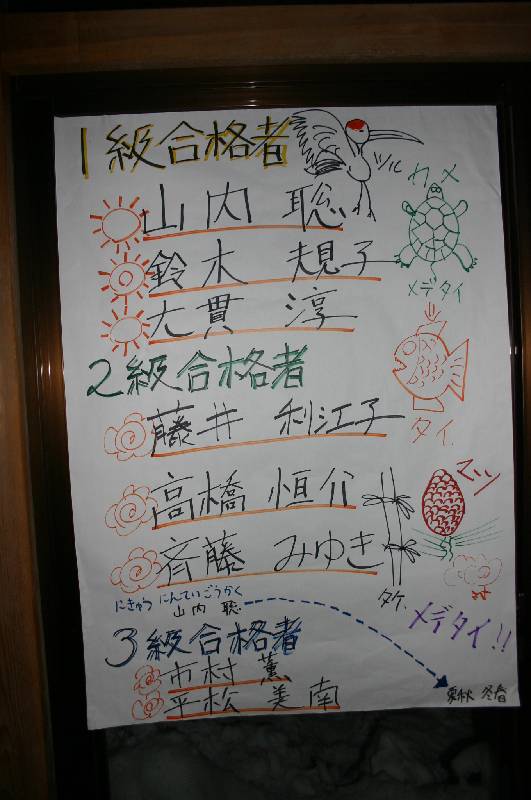 1級合格者
ツル
山内 聡
カメ
鈴木 規子
メデタイ
大貫 淳
2級合格者
タイ
藤井 利江子
マツ
高橋 恒介
斉藤 みゆき
タケ
にきゅう にんていごうかく
山内 聡
メデタイ!!
3級合格者
市村 薫
平松 美南